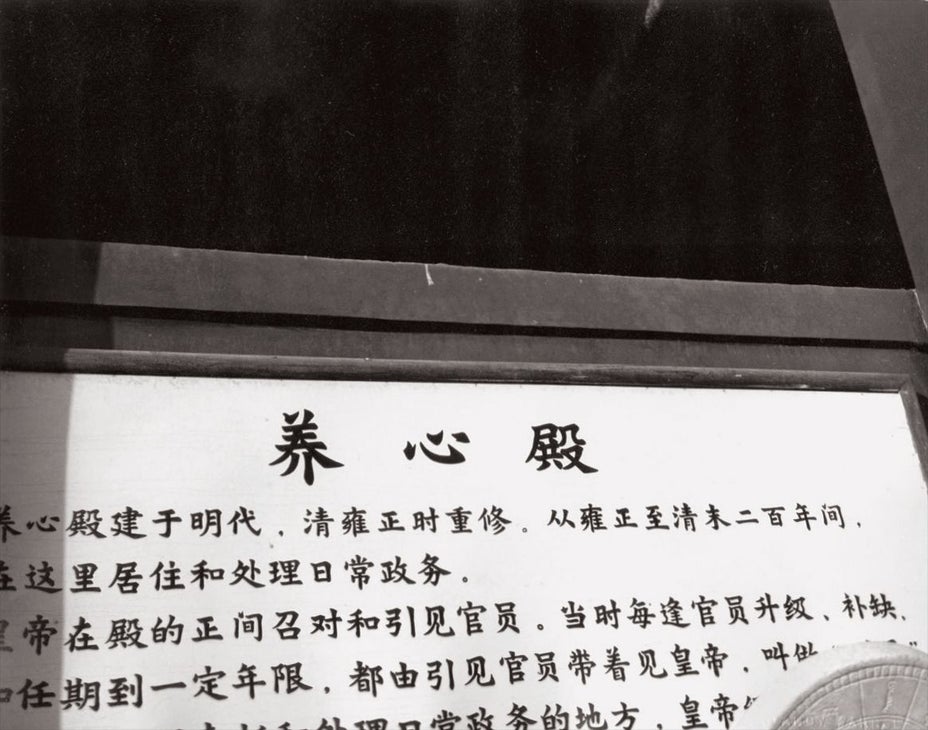 养心殿
养心殿建于明代，清雍正时重修。从雍正至清末二百年间，
在这里居住和处理日常政务。
皇帝在殿的正间召对和引见官员。当时每逢官员升级、补缺，
和任期到一定年限，都由引见官员带着见皇帝，叫做
和处理日常政务的地方，皇帝